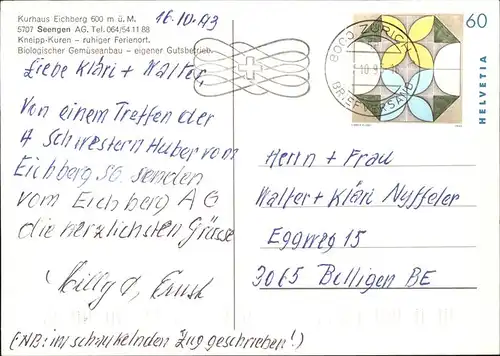 Kurhaus Eichberg 600 m ü. M.
5707 Seengen AG, Tel. 064/54 11 88
Kneipp-Kuren – ruhiger Ferienort.
Biologischer Gemüseanbau – eigener Gutsbetrieb.
16.10.93
Liebe Kläri + Walter,
Von einem Treffen der
4 Schwestern Huber vom
Eichberg SG senden
vom Eichberg AG
die herzlichsten Grüsse
Milly + Ernst
(NB: im schaukelnden Zug geschrieben!)
8000 ZÜRICH
BRIEFVERSAND
60
HELVETIA
Herrn + Frau
Walter + Kläri Nyffeler
Eggweg 15
3065 Bolligen BE